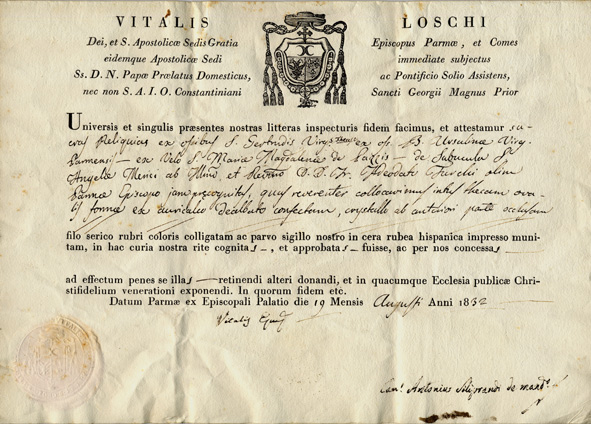 VITALIS LOSCHI
Dei, et S. Apostolicæ Sedis Gratia Episcopus Parmæ, et Comes
eidemque Apostolicæ Sedi immediate subjectus
Ss. D. N. Papæ Prælatus Domesticus, ac Pontificio Solio Assistens,
nec non S. A. I. O. Constantiniani Sancti Georgii Magnus Prior
Universis et singulis præsentes nostras litteras inspecturis fidem facimus, et attestamur sa-
cras Reliquias ex ossibus S. Gertrudis Virg. ex os. B. Ursulinæ Virg.
Parmensis - ex Velo S. Mariæ Magdalenæ de Pazzis - de
Angelæ Merici ab et D. D. Fr. Adeodati Turchi olim
Parmæ Episcopo jam recognitas, quas reverenter collocavimus intus thecam ova-
lis formæ ex auricalco deaurato confectam, crystallo ab anteriori parte occlusam
filo serico rubri coloris colligatam ac parvo sigillo nostro in cera rubea hispanica impresso muni-
tam, in hac curia nostra rite cognitas, et approbatas fuisse, ac per nos concessas
ad effectum penes se illas retinendi alteri donandi, et in quacumque Ecclesia publicæ Chri-
stifidelium venerationi exponendi. In quorum fidem etc.
Datum Parmæ ex Episcopali Palatio die 19 Mensis Augusti Anni 1832
Vitalis
Antonius de mand.